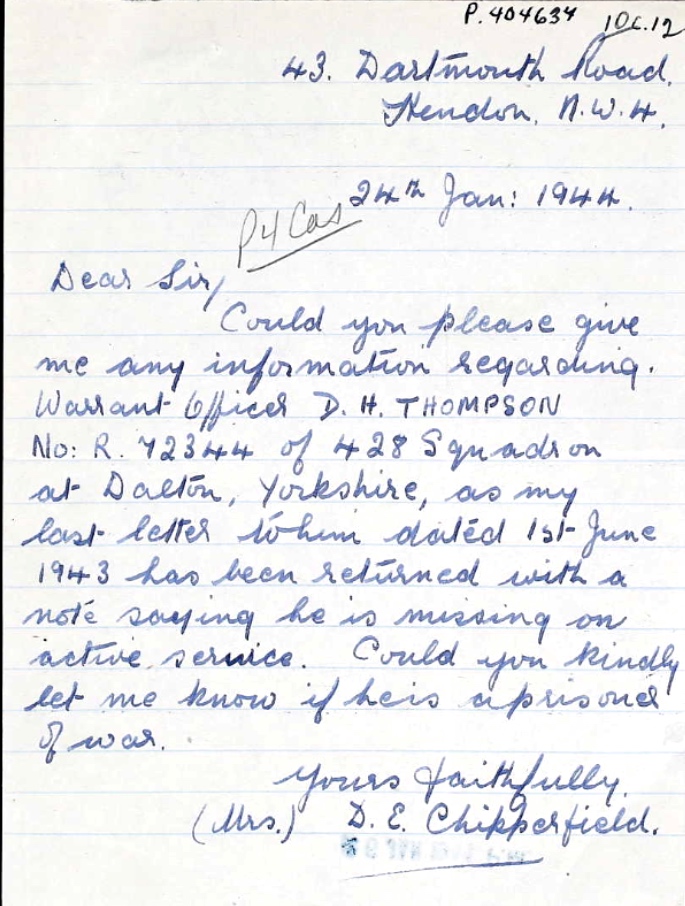 P. 404634
43. Dartmouth Road.
Hendon. N.W.4.
24th Jan: 1944.
P4 Cas
Dear Sir,
Could you please give
me any information regarding.
Warrant Officer D. H. THOMPSON
No: R. 72344 of 428 Squadron
at Dalton, Yorkshire, as my
last letter to him dated 1st June
1943 has been returned with a
note saying he is missing on
active service. Could you kindly
let me know if he is a prisoner
of war.
Yours faithfully.
(Mrs.) D. E. Chipperfield.